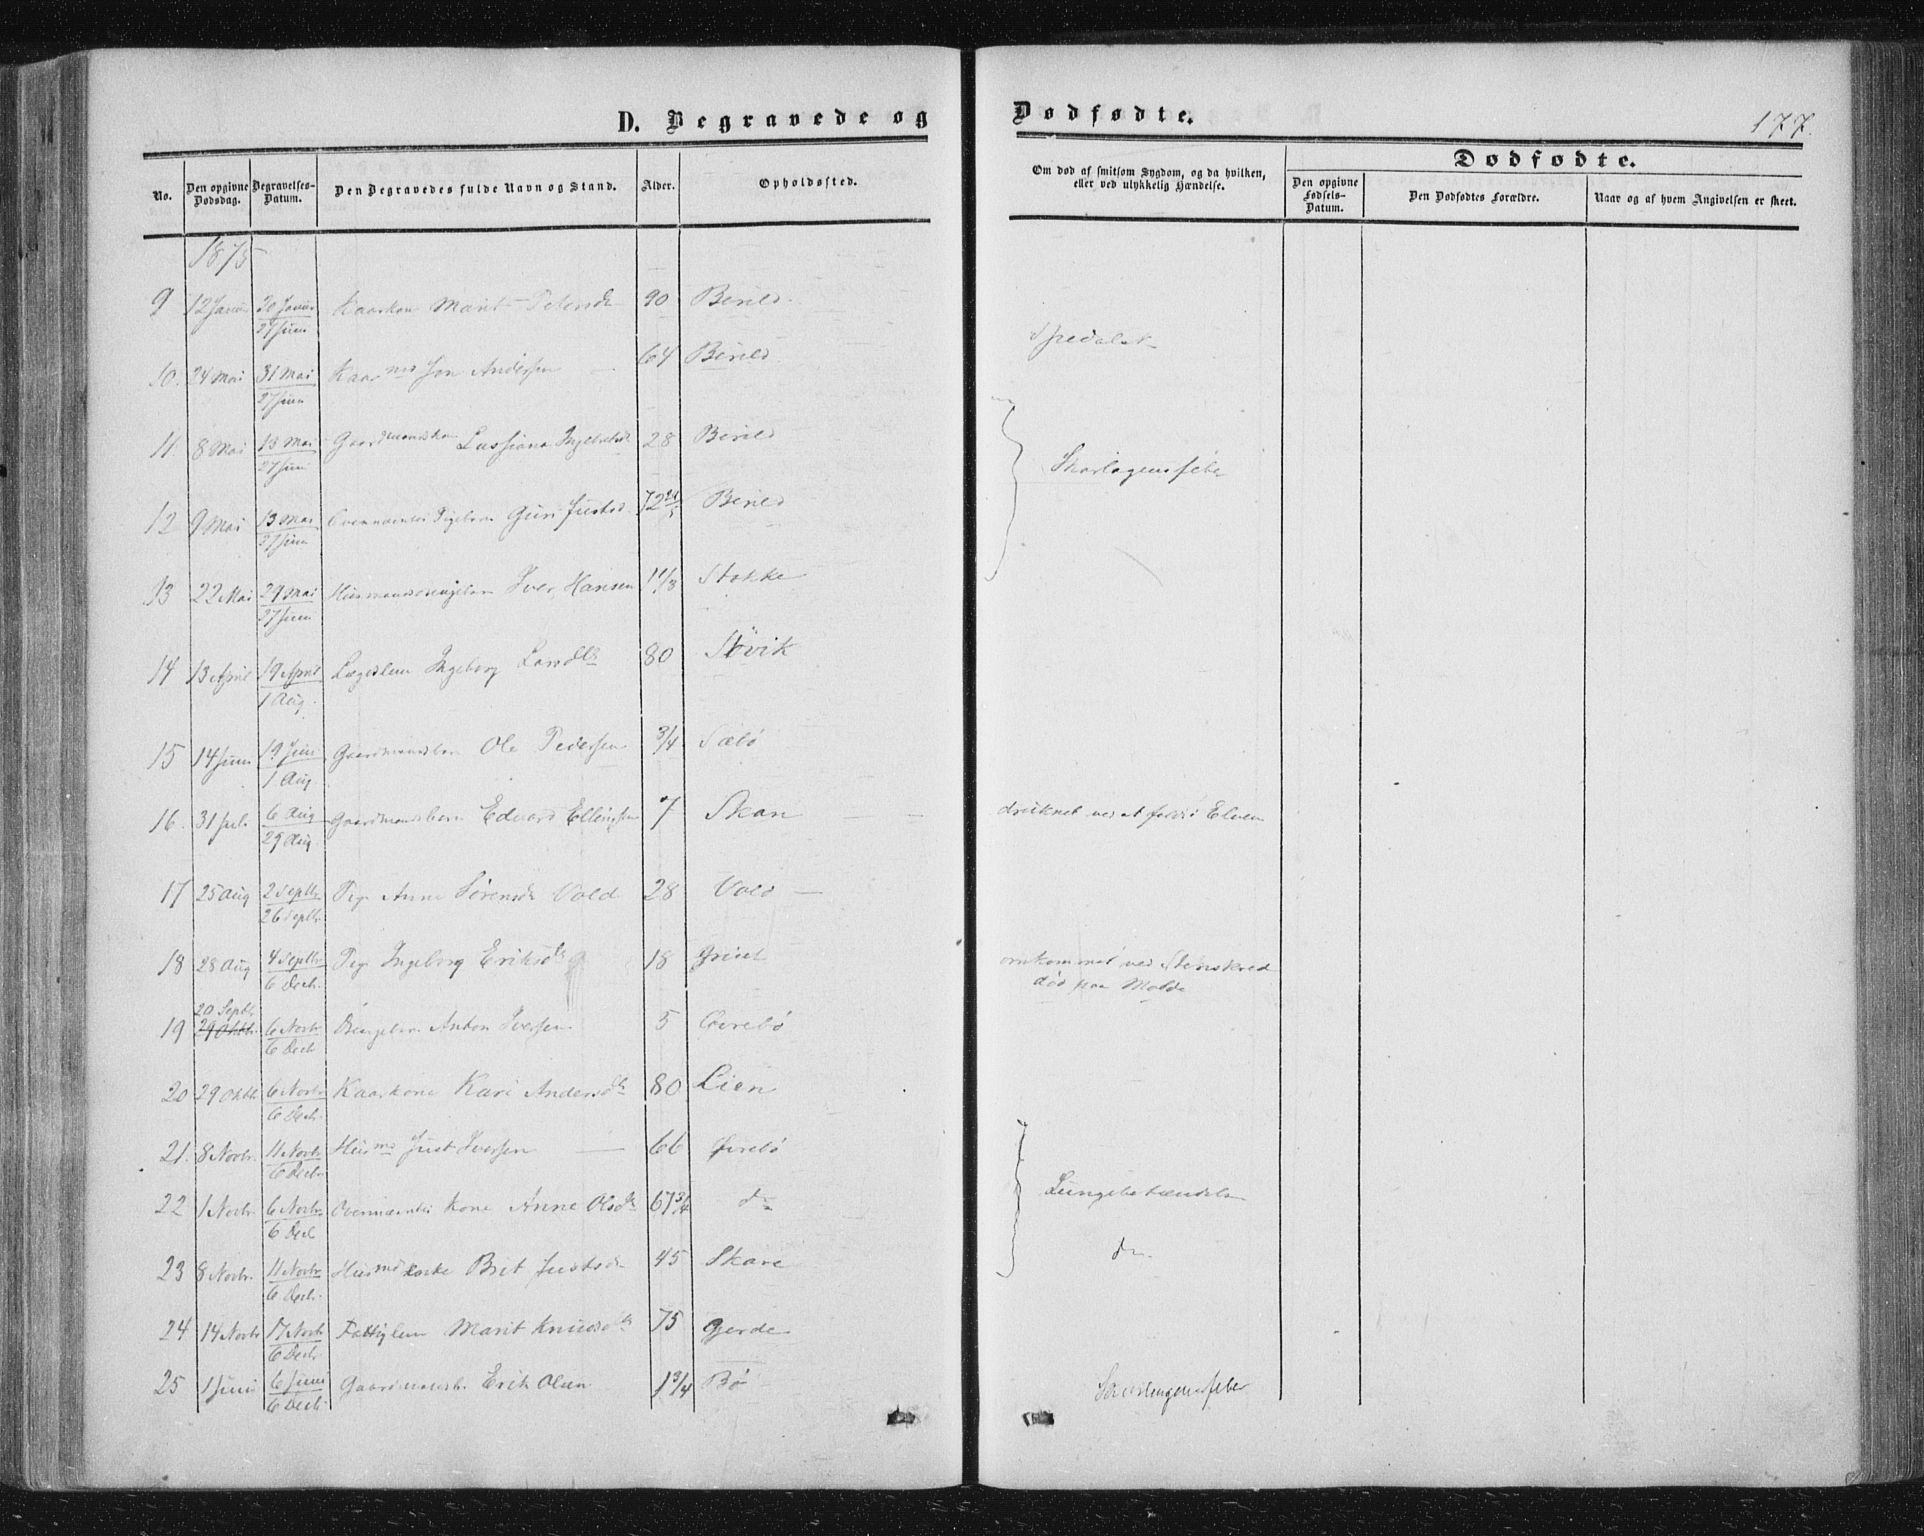 D. Begravede og Dødfødte.
177.
No.
Den opgivne Dødsdag.
Begravelses-Datum.
Den Begravedes fulde Navn og Stand.
Alder.
Opholdssted.
Om død af smitsom Sygdom, og da hvilken, eller ved ulykkelig Hændelse.
Dødfødte.
Den opgivne Fødsels-Datum.
Den Dødfødtes Forældre.
Naar og af hvem Angivelsen er skeet.
1875
9 12 Januar 20 Januar / 27 Juni Kaarkone Marit 90 Berild
10. 24 Mai 31 Mai / 27 Juni Kaarmd Jon Andersen 64 Berild Spedalsk
11 8 Mai 13 Mai / 27 Juni Gaardmandskone 28 Berild
Skarlagensfeber
12 9 Mai 13 Mai / 27 Juni Ovennævntes Pigebarn Guri Justsd. Berild
13 22 Mai 29 Mai / 27 Juni Husmandsdrengebarn Iver Hansen 1 1/3 Stokke
14 13 April 19 April / 1 Aug. Lægdslem Ingeborg Larsdtr 80 Støvik
15 14 Juni 19 Juni / 1 Aug. Gaardmandsbarn Ole Pedersen 3/4 Sæbø
16. 31 Juli 6 Aug / 29 Aug Gaardmandsbarn Edvard Ellingsen 7 Skar druknet ved at falde i Elven
17 25 Aug 2 Septbr / 26 Septbr. Pige Anne Sørensdtr Vold 28 Vold
18 28 Aug 4 Septbr / 6 Decbr. Pige Ingeborg Eriksdtr 18 omkommet ved Stenskred
død paa Molde
20 Septbr.
19 29 Oktbr. 6 Novbr / 6 Decb Drengebarn Anton Iversen 5
20 29 Oktbr 6 Novbr / 6 Decbr. Kaarkone Kari Andersdtr 80 Lien
21. 8 Novbr. 11 Novbr / 6 Decbr. Husmd Just Iversen 66
22 1 Novbr. 6 Novbr. / 6 Decb Ovennævntes Kone Anne Olsdtr 61 3/4 do
Lungebetændelse
23 8 Novbr. 11 Novbr / 6 Decbr. Brit Justsdtr 45 Skare do.
24 14 Novbr 17 Novb / 6 Decbr Fattiglem Marit Knudsdtr 75 Gjerde
25 1 Juni 6 Juni / 6 Decbr. Gaardmandsb. Erik Olsen 1 3/4 Bø Skarlagensfeber